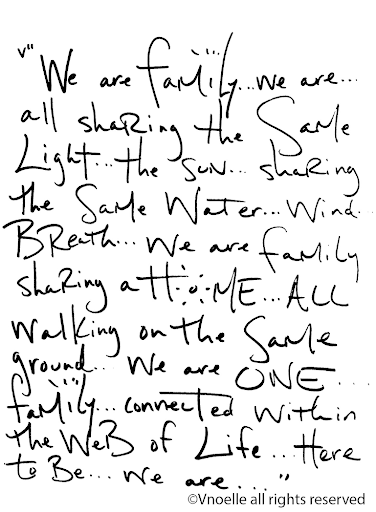 v"
"We are family... we are...
all sharing the Same
Light... the sun... sharing
the Same Water... Wind..
BReath... We are family
sharing a H:o:ME... ALL
Walking on the Same
ground... We are ONE...
family... connected within
the WeB of Life... Here
to Be... We are..."
©Vnoelle all rights reserved